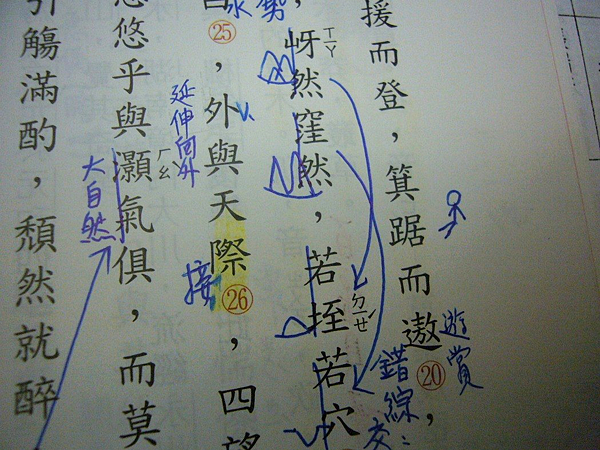 援而登，箕踞而遨⑳，
遊賞
，岈然窪然，若垤若穴
ㄒㄧㄚ
ㄉㄧㄝˊ
錯綜交
㉕，外與天際㉖，四望
延伸向外
接
悠悠乎與灝氣俱，而莫
ㄏㄠˋ
大自然
引觴滿酌，頹然就醉